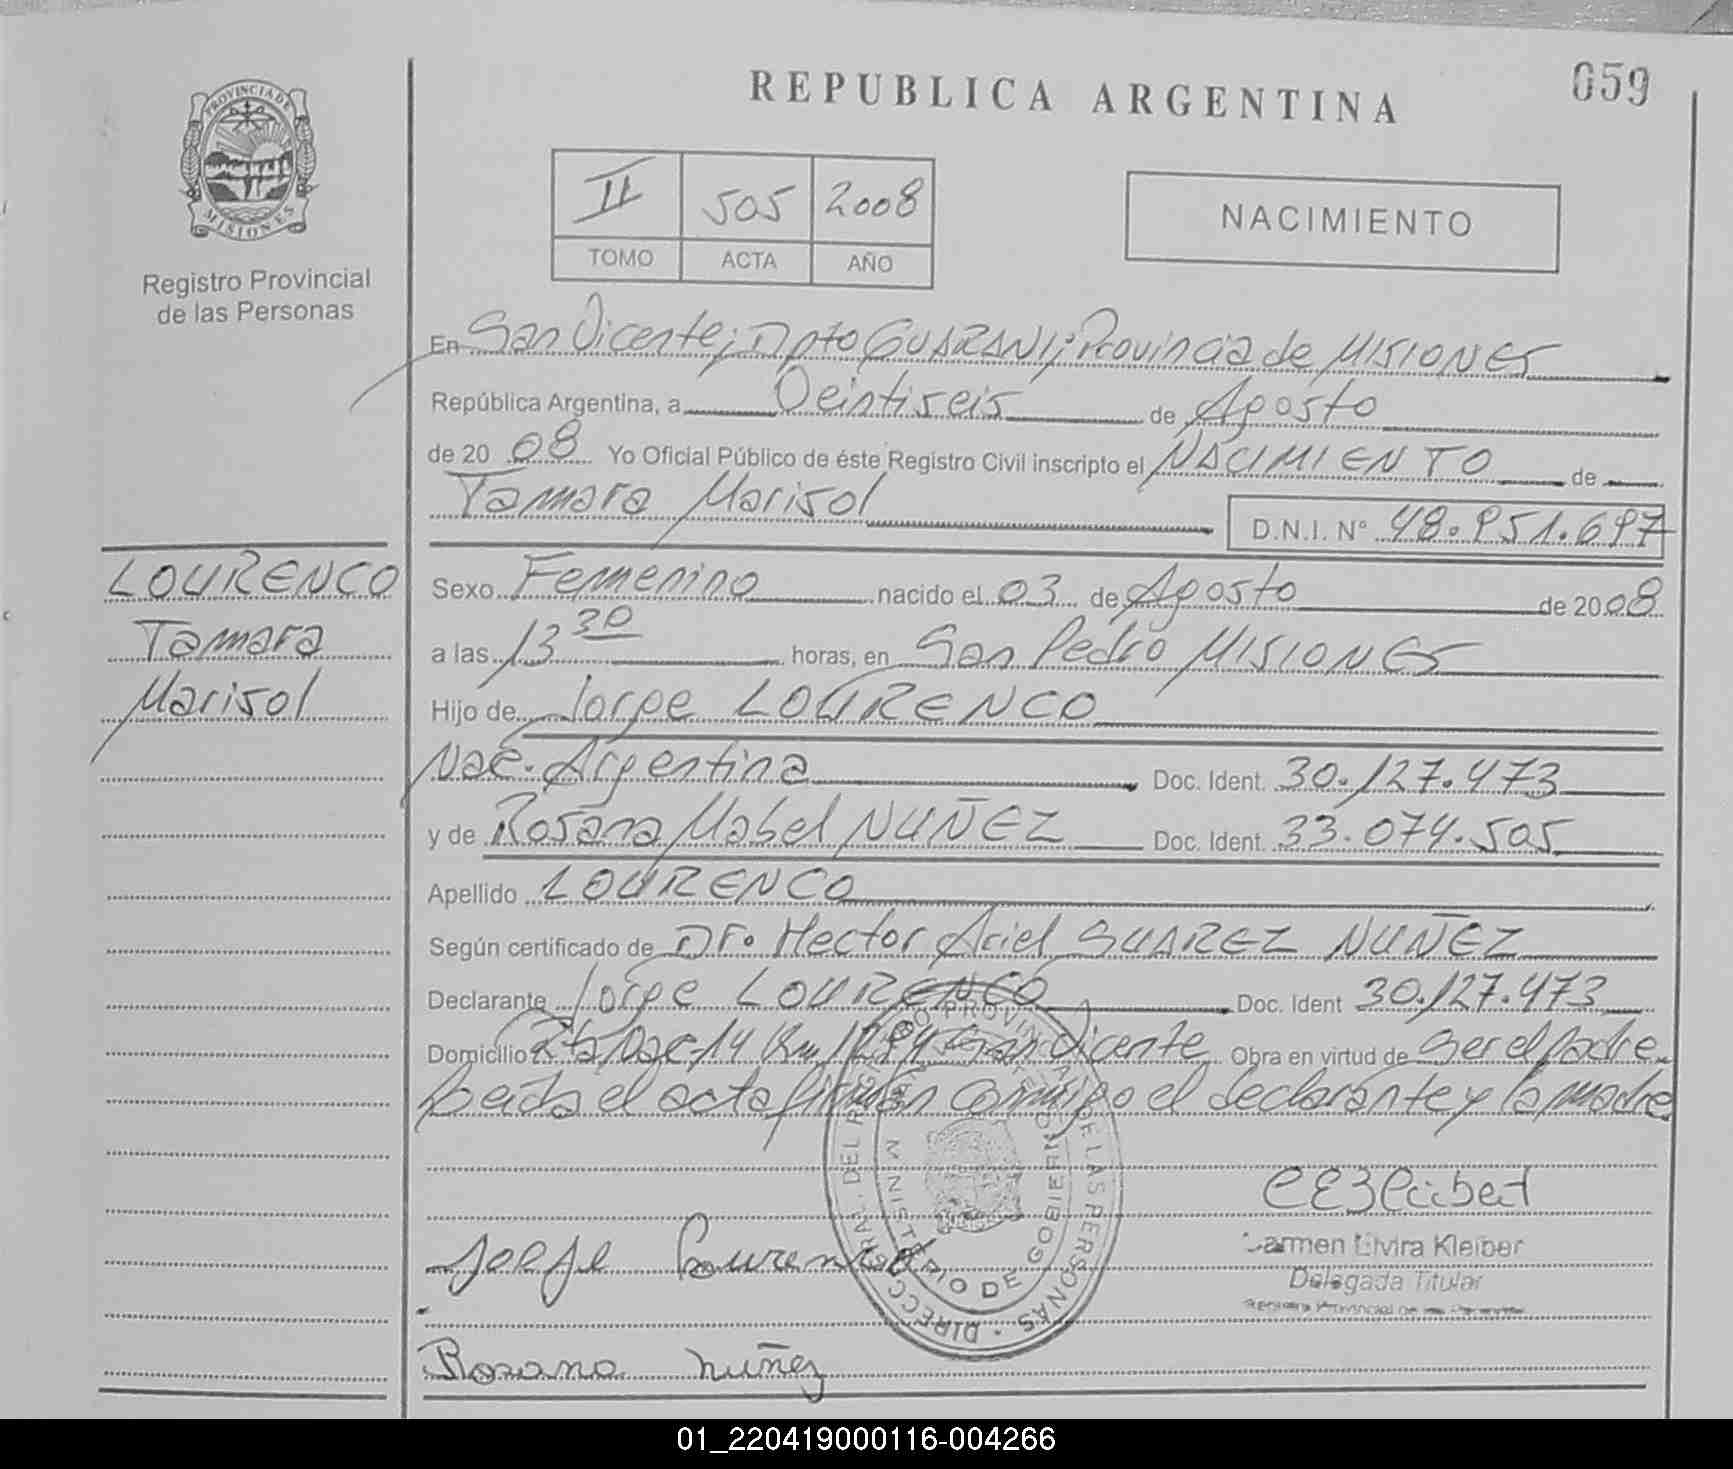 059
REPUBLICA ARGENTINA
PROVINCIA DE
MISIONES
Registro Provincial
de las Personas
II 505 2008
TOMO ACTA AÑO
NACIMIENTO
En San Vicente; Dpto GUARANI; Provincia de MISIONES
República Argentina, a Veintiseis de Agosto
de 20 08 Yo Oficial Público de éste Registro Civil inscripto el NACIMIENTO de
Tamara Marisol D.N.I. N° 48.951.697
LOURENCO
Tamara
Marisol
Sexo Femenino nacido el 03 de Agosto de 20 08
a las 13 30 horas, en San Pedro MISIONES
Hijo de Jorge LOURENCO
Nac. Argentina Doc. Ident. 30.127.473
y de Rosana Mabel NUÑEZ Doc. Ident. 33.074.505
Apellido LOURENCO
Según certificado de Dr. Hector Ariel SUAREZ NUÑEZ
Declarante Jorge LOURENCO Doc. Ident 30.127.473
Domicilio Km San Vicente Obra en virtud de Ser el padre
Leida el acta firman conmigo el declarante y la madre
DIRECC. GRAL. DEL REGISTRO PROVINCIAL DE LAS PERSONAS
MINISTERIO DE GOBIERNO
Jorge Lourenco
Carmen Elvira Kleiber
Delegada Titular
Registro Provincial de las Personas
Rosana Nuñez
01_220419000116-004266